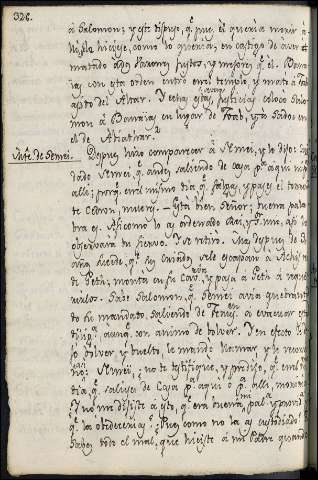 328.
à Salomon; y este dispuso, q.e pues el queria morir à
lli, se hiciese, como lo queria; en castigo de aver
matado dos Varones justos, y mejores q.e el. Bana
ias con esta orden entrò en el templo, y matò a Joab
asido del Altar. Y echas estas justicias colocò Salo
mon à Banaias en lugar de Joab, y a Sadoc en
el de Abiathar.
Muerte de Semei.
Despues hizo comparecer à Semei, y le dijo:
dado Semei, q.e andes saliendo de casa p.a aqui ni p.a
alli; porq.e en el mismo dia q.e salgas, y pases el torren
te Cedron, moriràs. — Està bien Señor; buena pala
bra es. Asi como lo ay ordenado Rei, y S.r mio, asi lo
observarà tu siervo. Y se retirò. Mas despues de
años sucede, q.e sus criados se le escaparon à Achis
de Geth; monta en su Cavallo, y pasa à Geth à requi
rirlos. Sabe Salomon, q.e Semei avia quebranta
do su mandato saliendo de à evacuar esta
dilig.a, aunq.e con animo de bolver. Y en efecto
lo bolver, y buelto, le mandò llamar, y le recon
vino: Semei; no te testifiquè, y predije, q.e en el
dia q.e salieses de Casa p.a aqui ò p.a alli, moririas
Y no me dijiste à esto, q.e era buena pal.a, y
q.e la obedecerias? Pues como no la as custodiado?
Sabes todo el mal, que hiciste à mi Padre quando